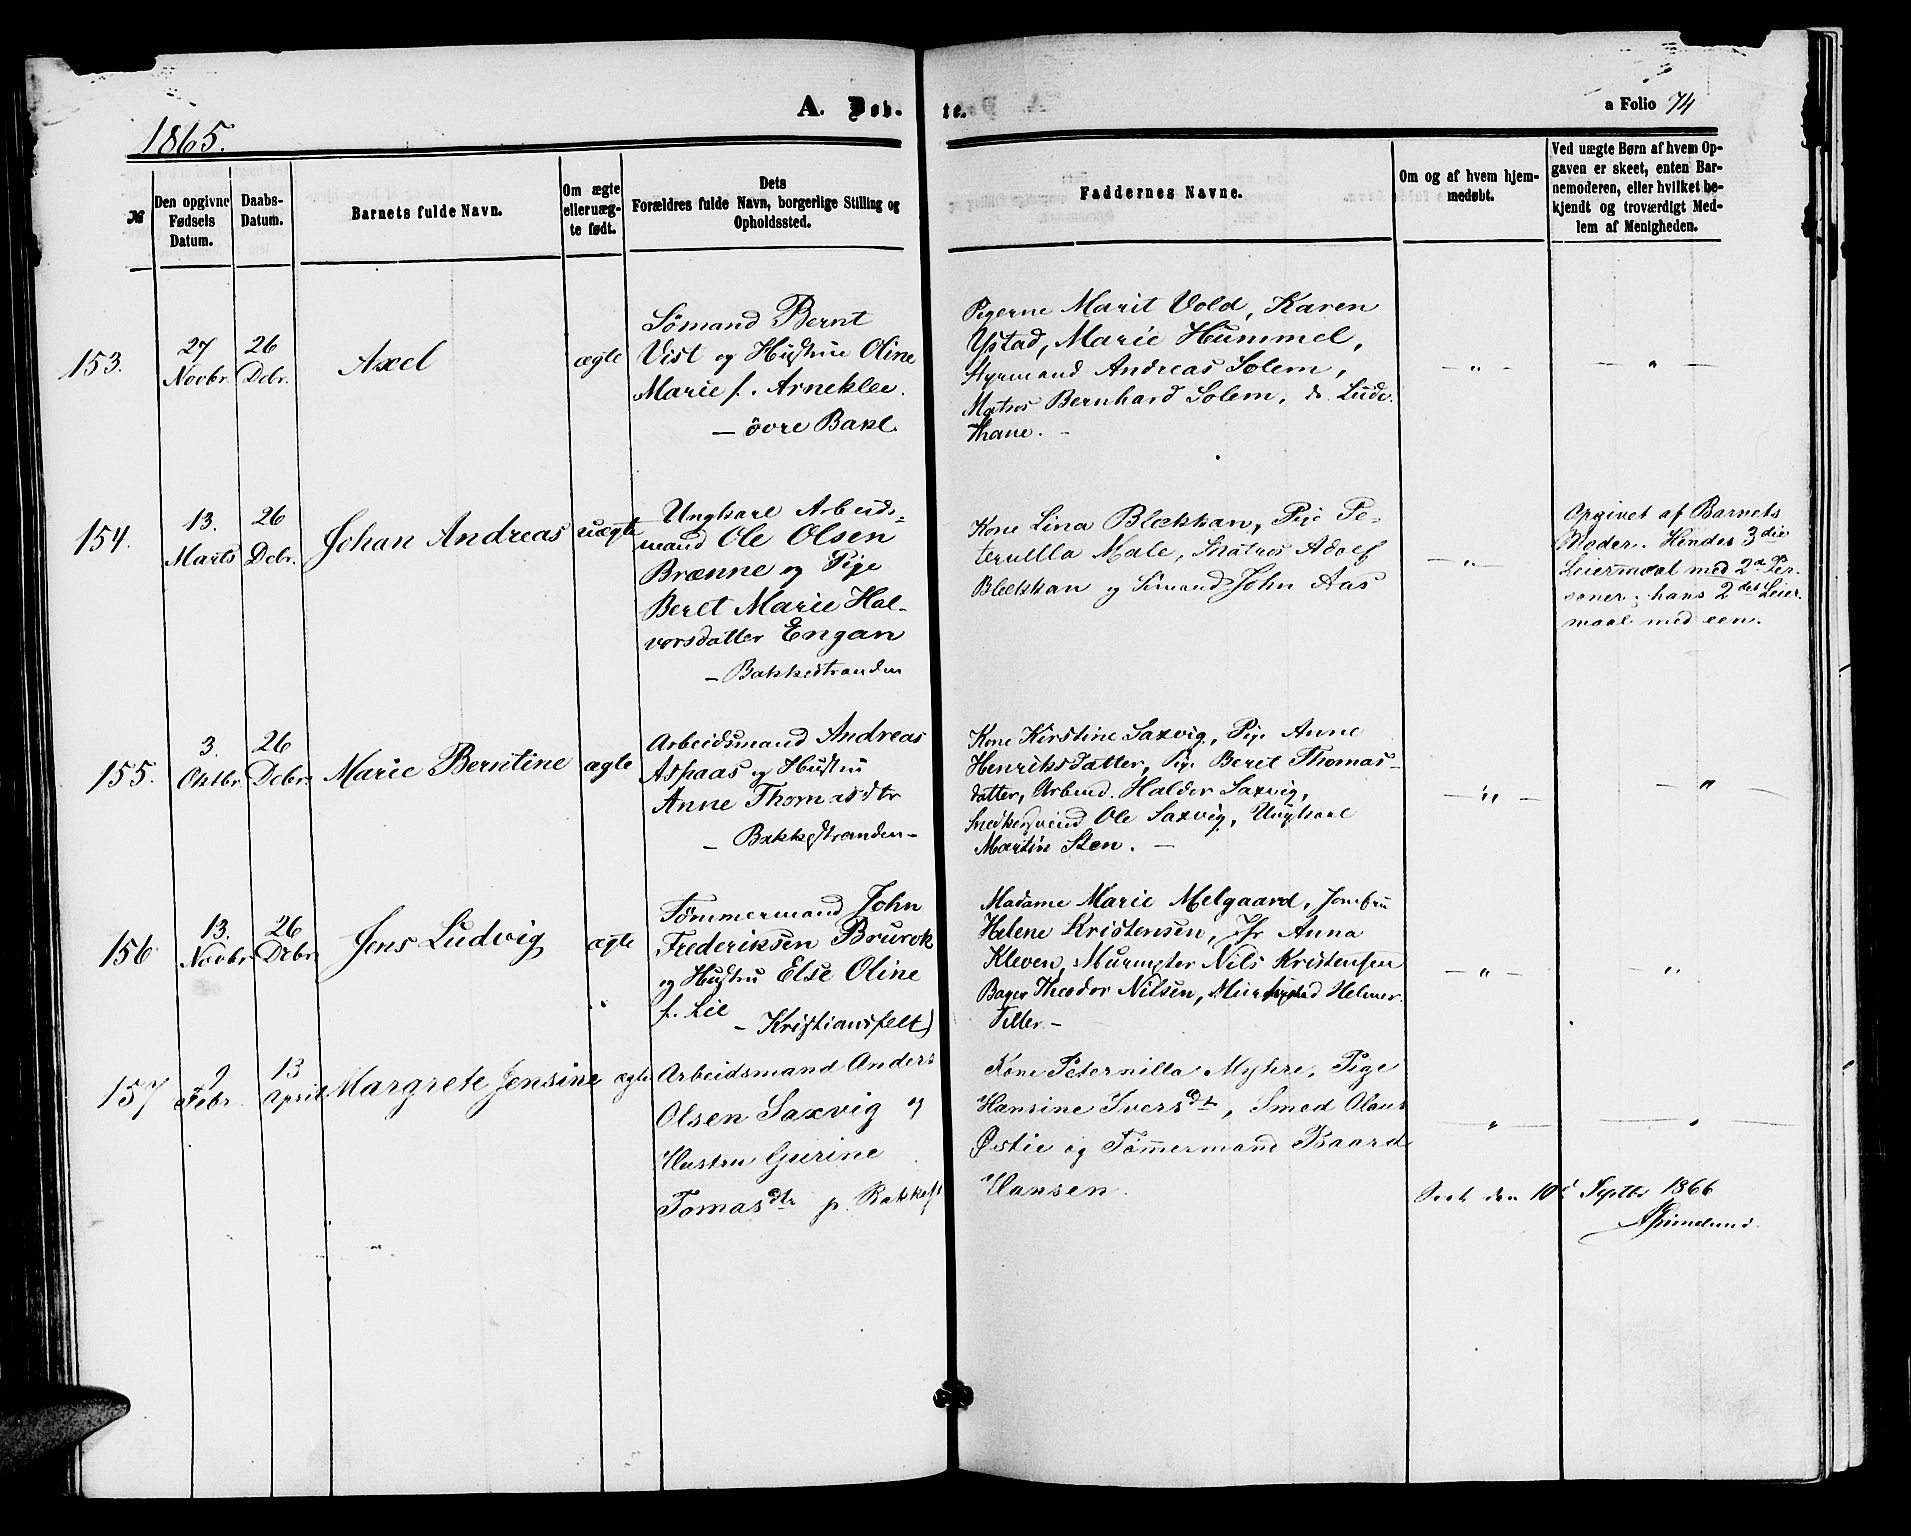 A. Døb- te.
a Folio 74
1865.
№
Den opgivne
Fødsels
Datum.
Daabs-
Datum.
Barnets fulde Navn.
Om ægte
eller uæg-
te født.
Dets
Forældres fulde Navn, borgerlige Stilling og
Opholdssted.
Faddernes Navne.
Om og af hvem hjem-
medøbt.
Ved uægte Børn af hvem Op-
gaven er skeet, enten Bar-
nemoderen, eller hvilket be-
kjendt og troværdigt Med-
lem af Menigheden.
153.
27
Novbr.
26
Debr.
Axel
ægte
Sömand Bernt
Vist og Hustru Oline
Marie f. Arneklee.
— övre Bakl.
Pigerne Marit Vold, Karen
Ystad, Marie Hummel,
Styrmand Andreas Solem,
Matros Bernhard Solem, do. Lude.
Thane. -
— " —
"
154.
13.
Marts
26
Debr.
Johan Andreas
uægte
Ungkarl Arbeids-
mand Ole Olsen
Brænne og Pige
Beret Marie Hal-
vorsdatter Engan
- Bakkestranden
Kone Lina Blækkan, Pige Pe-
Male, Matros Adolf
Blækkan og Sömand John Aas
— " —
Opgivet af Barnets
Moder. Hendes 3die
Leiermaal med 2de Per-
soner; hans 2det Leier-
maal med een.
155.
3.
Oktbr.
26
Debr.
Marie Berntine
ægte
Arbeidsmand Andreas
Aspaas og Hustru
Anne Thomasdtr
- Bakkestranden -
Kone Kirstine Saxvig, Pige Anne
Henriksdatter, Pige Beret Thomas-
datter, Arbmd. Haldor Saxvig,
Snedkersvend Ole Saxvig, Ungkarl
Martin Sten. —
— " —
— " —
156
13.
Novbr.
26
Debr.
Jens Ludvig
ægte
Tömmermand John
Frederiksen Brurok
og Hustru Else Oline
f. Lie
- Kristiansfelt)
Madame Marie Melgaard, Jomfru
Helene Kristensen, Jfr Anna
Kleven, Murmester Nils Kristensen
Bager Theodor Nilsen, Helmer
Tiller -
— " —
— "
157
9
Febr.
13
April
Margrete Jensine
ægte
Arbeidsmand Anders
Olsen Saxvig og
Hustru Gurine
Tomasdtr p. Bakkest
Kone Peternilla Myhre, Pige
Hansine Iversdt, Smed Olaus
Østie og Tömmermand Baard
Hansen.
— " —
— " —
Seet den 10de Septbr 1866